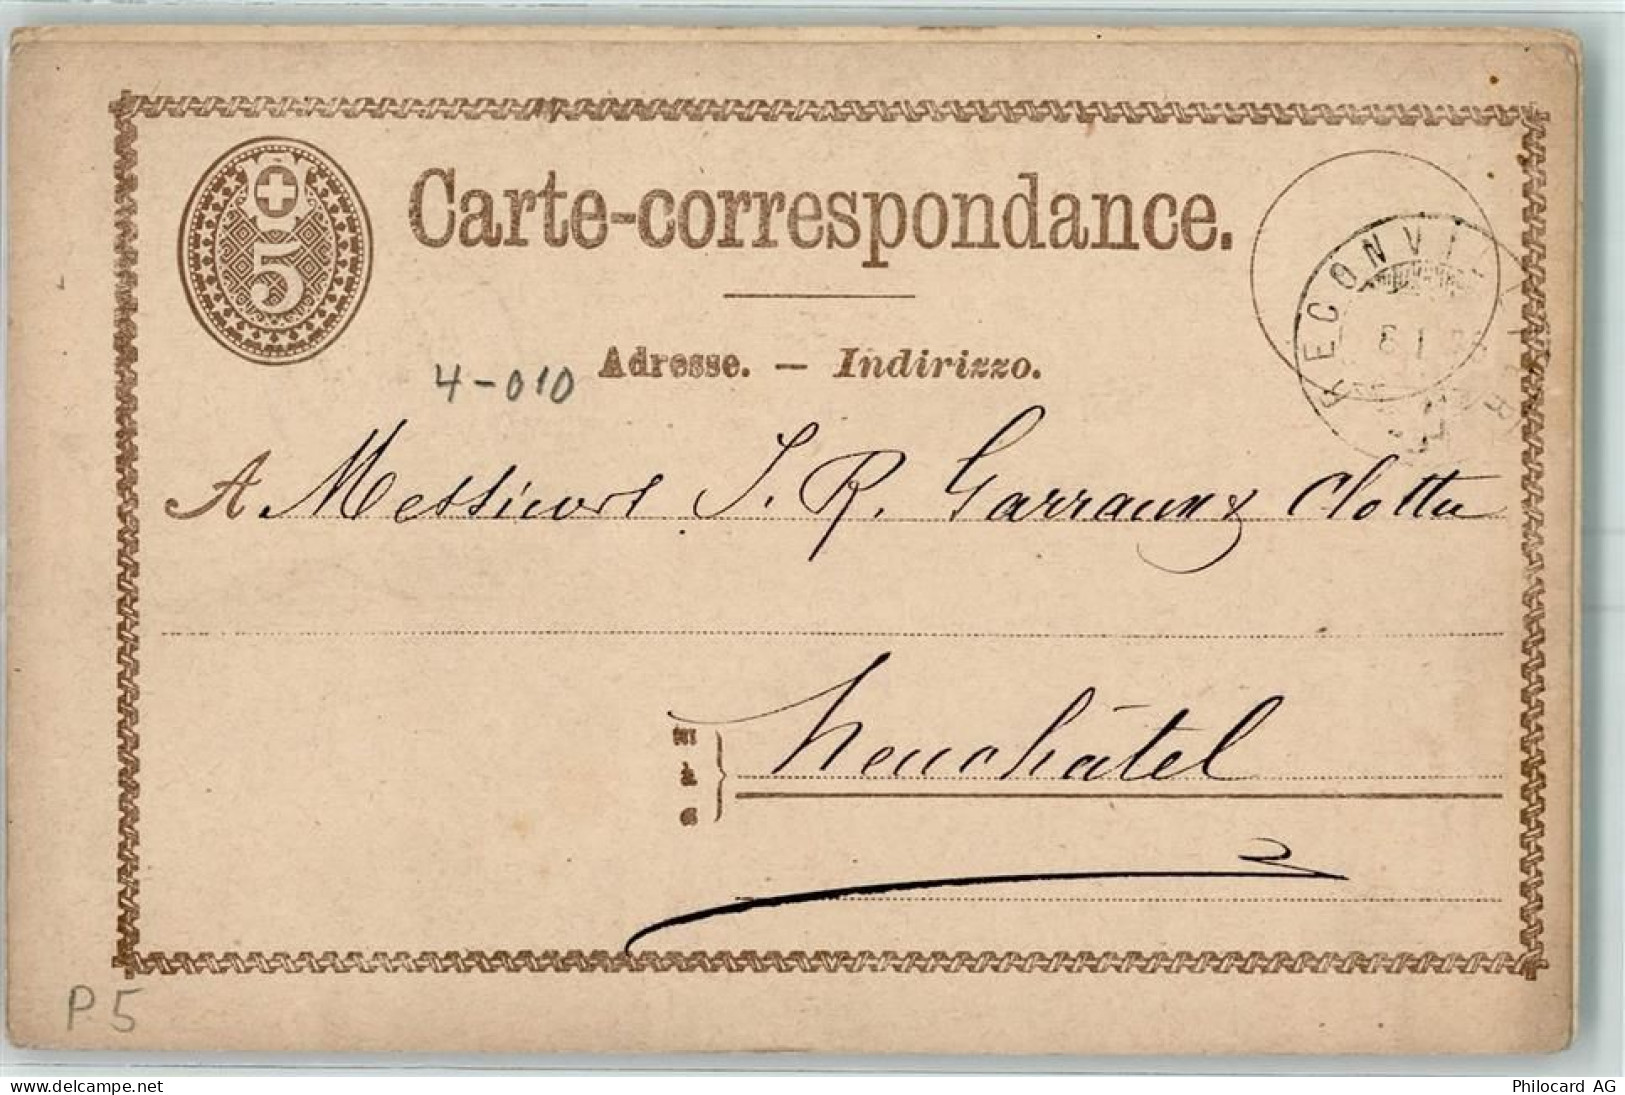 5
Carte-correspondance.
RECONVILLIER
Adresse. — Indirizzo.
4-010
A Messieurs J. R. Garraux & Clottu
in
à
a
Neuchâtel
P 5
www.delcampe.net
Philocard AG